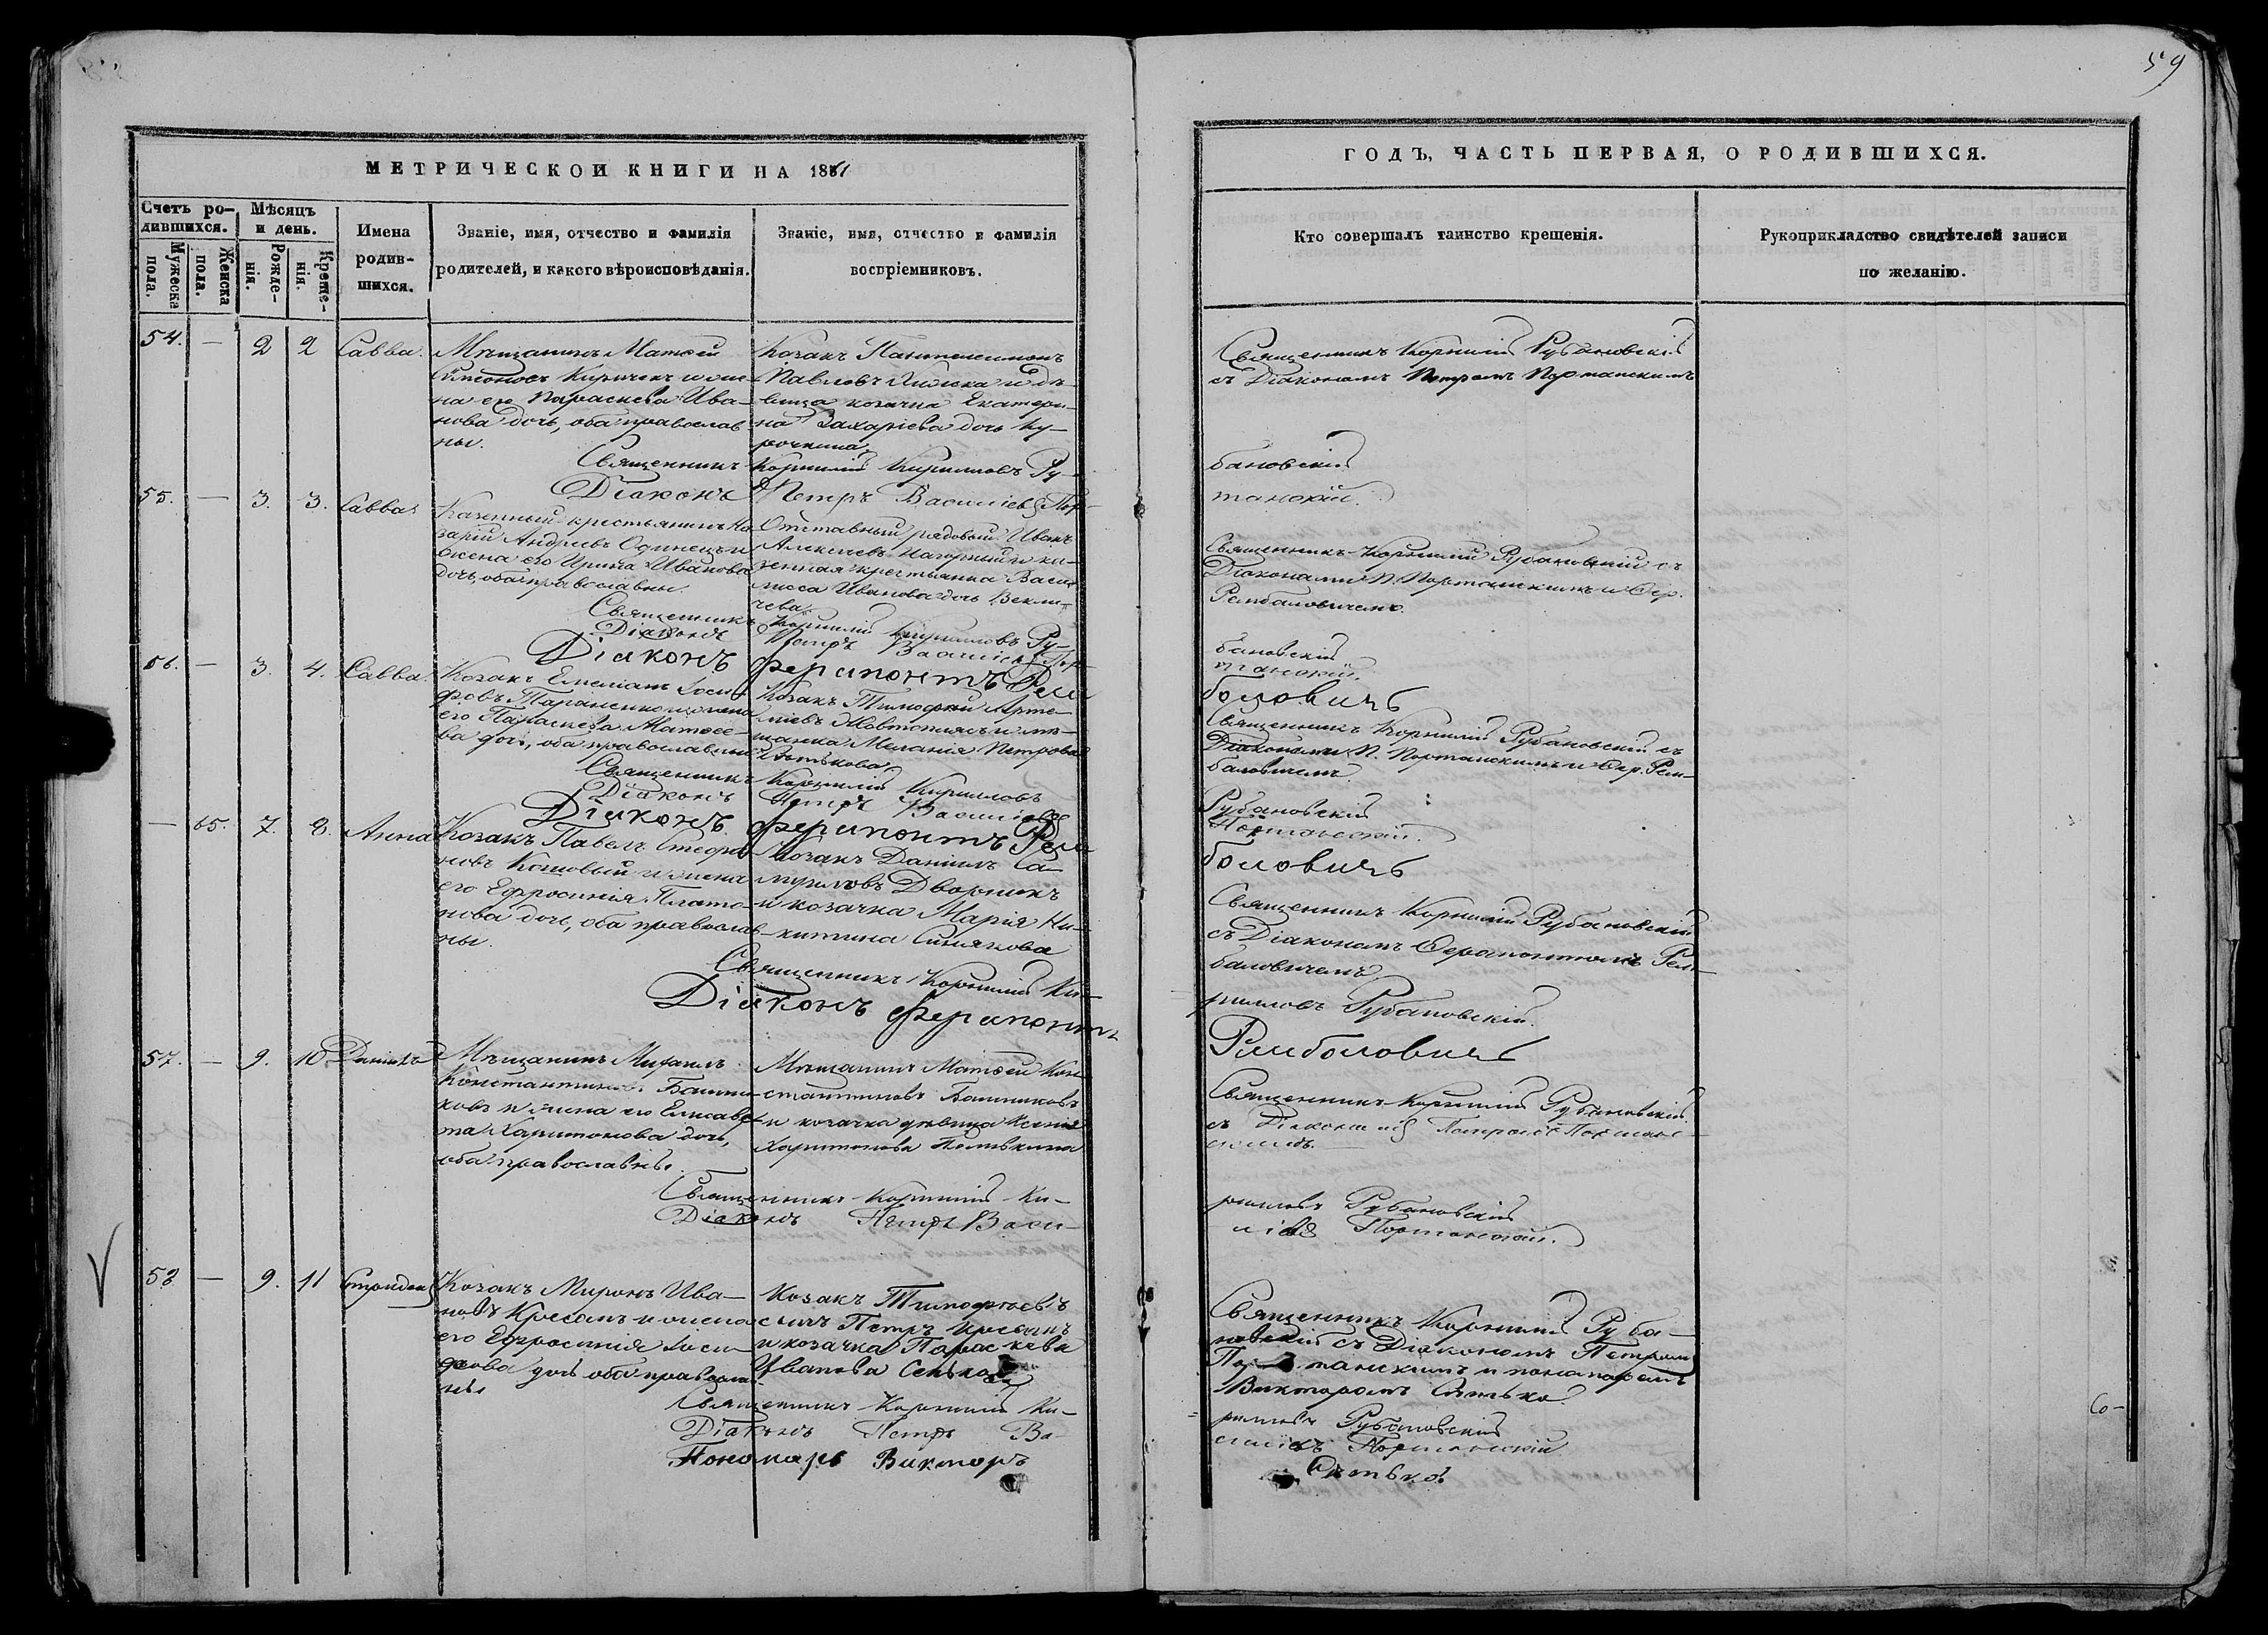 59
МЕТРИЧЕСКОЙ КНИГИ НА 1861
Счетъ ро-
дившихся.
Мужеска
пола.
Женска
пола.
Мѣсяцъ
и день.
Рожде-
нія.
Креще-
нія.
Имена
родив-
шихся.
Званіе, имя, отчество и фамилія
родителей, и какого вѣроисповѣданія.
Званіе, имя, отчество и фамилія
воспріемниковъ.
ГОДЪ, ЧАСТЬ ПЕРВАЯ, О РОДИВШИХСЯ.
Кто совершалъ таинство крещенія.
Рукоприкладство свидѣтелей записи
по желанію.
54. — 2 2 Савва.
Мѣщанинъ Матѳей
Симеоновъ Киричекъ и же-
на его Параскева Ива-
нова дочь, оба православ
ны.
Козакъ Пантелеимонъ
Павловъ и дѣ-
вица козачка Екатери-
на Захаріева дочь Ку-
рочкина
Священникъ Корнилій Рубановскій
съ Діакономъ Петромъ Портанскимъ
Священникъ Корнилій Кирилловъ Ру-
бановскій
Діаконъ Петръ Василіевъ Пор-
танскій.
55. — 3. 3. Савва
Казенный крестьянинъ На
зарій Андреевъ Одинецъ и
жена его Ирина Иванова
дочь, оба православны.
Отставный рядовый Иванъ
Алексіевъ Нагорный и ка-
зенная крестьянка Васи-
лиса Иванова дочь Векли-
чева
Священникъ Корнилій Рубановскій съ
Діаконами П. Портанскимъ и Ѳер.
Рембаловичемъ.
Священникъ Корнилій Кирилловъ Ру-
бановскій
Діаконъ Петръ Василіевъ Пор-
танскій.
Діаконъ Ферапонтъ Рем
боловичь
56. — 3. 4. Савва.
Козакъ Емеліанъ Іоси-
фовъ Тараненко и жена
его Параскева Матѳее-
ва дочь, оба православны.
Козакъ Тимофей Арте-
міевъ Жовтоножъ и мѣ-
щанка Меланія Петрова
Священникъ Корнилій Рубановскій съ
Діаконами П. Портанскимъ и Ѳер. Рем-
баловичемъ
Священникъ Корнилій Кирилловъ
Рубановскій
Діаконъ Петръ Василіевъ
Портанскій.
Діаконъ Ферапонтъ Рем
боловичь
— 65. 7. 8. Анна
Козакъ Павелъ Стефа-
новъ Кошовый и жена
его Ефросинія Плато-
нова дочь, оба православ-
ны.
Козакъ Даніилъ Са-
муиловъ Дворникъ
и козачка Марія Ни-
китина Синякова
Священникъ Корнилій Рубановскій
съ Діакономъ Ѳерапонтомъ Рем-
баловичемъ
Священникъ Корнилій Ки-
рилловъ Рубановскій.
Діаконъ Ферапонтъ
Ремболовичь
57. — 9. 10 Даніилъ
Мѣщанинъ Михаилъ
Константиновъ Башни-
ковъ и жена его Елисаве-
та Харитонова дочь,
оба православны.
Мѣщанинъ Матѳей Кон-
стантиновъ Башниковъ
и козачка дѣвица Ксенія
Харитонова
Священникъ Корнилій Рубановскій
съ Діакономъ Петромъ Портан-
скимъ.
Священникъ Корнилій Ки-
рилловъ Рубановскій
Діаконъ Петръ Васи-
ліевъ Портанскій.
V
58 — 9. 11 Спиридонъ
Козакъ Миронъ Ива-
новъ Кресанъ и жена
его Ефросинія Іоси-
фова дочь оба православ-
ны
Козакъ Тимофеевъ
сынъ Петръ Кресанъ
и козачка Параскева
Иванова
Священникъ Корнилій Руба-
новскій съ Діакономъ Петромъ
Портанскимъ и пономаремъ
Викторомъ Сѣтько.
Священникъ Корнилій Ки-
рилловъ Рубановскій
Діаконъ Петръ Ва-
силіевъ Портанскій
Пономарь Викторъ
Сѣтько.